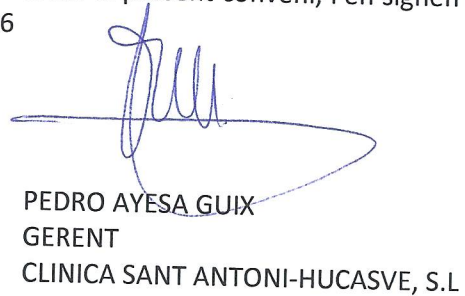 present conveni, i en signen
6
PEDRO AYESA GUIX
GERENT
CLINICA SANT ANTONI-HUCASVE, S.L